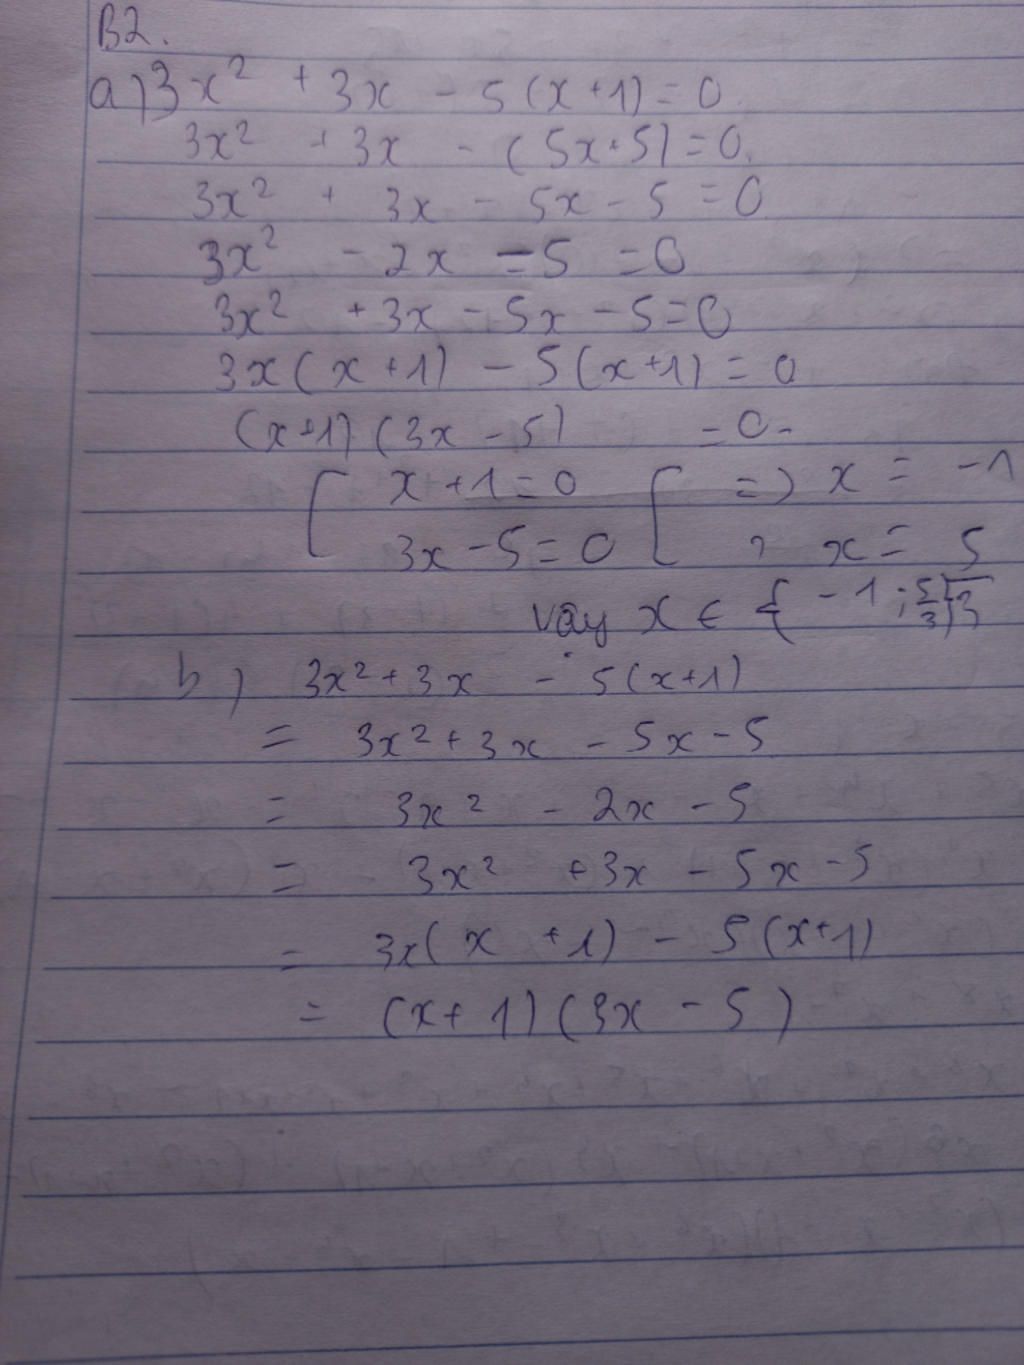 B2.
a) 3x² + 3x - 5(x+1) = 0
3x² + 3x - (5x+5) = 0.
3x² + 3x - 5x - 5 = 0
3x² - 2x - 5 = 0
3x² + 3x - 5x - 5 = 0
3x(x+1) - 5(x+1) = 0
(x+1)(3x - 5) = 0.
[ x+1=0 [ => x = -1
3x-5=0 x = 5/3
vậy x ∈ { -1 ; 5/3 }
b) 3x² + 3x - 5(x+1)
= 3x² + 3x - 5x - 5
= 3x² - 2x - 5
= 3x² + 3x - 5x - 5
= 3x(x + 1) - 5(x+1)
= (x+1)(3x - 5)